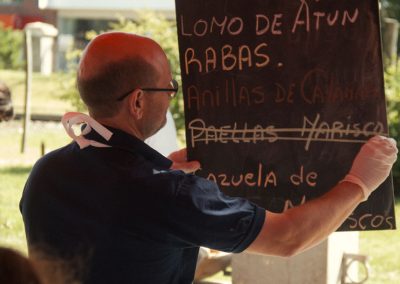 LOMO DE ATUN
RABAS.
Anillas DE CALAMAR
PAELLAS MARISCO
CAZUELA DE
MARISCOS